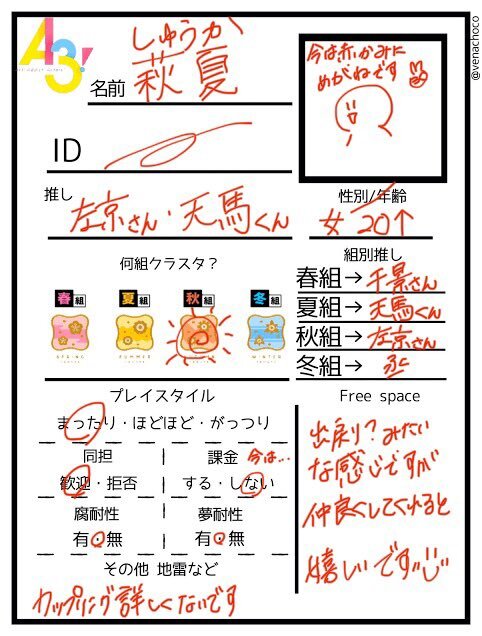 @venachoco
A3!
しゅうか
名前 萩夏
今は赤かみに
めがねです
ID
推し
左京さん・天馬くん
性別/年齢
女 20↑
何組クラスタ？
春組 夏組 秋組 冬組
SPRING SUMMER WINTER
組別推し
春組→千景さん
夏組→天馬くん
秋組→左京さん
冬組→丞
プレイスタイル
まったり・ほどほど・がっつり
同担
歓迎・拒否
課金 今は…
する・しない
腐耐性
有・無
夢耐性
有・無
その他 地雷など
カップリング詳しくないです
Free space
出戻り？みたい
な感じですが
仲良くしてくれると
嬉しいです